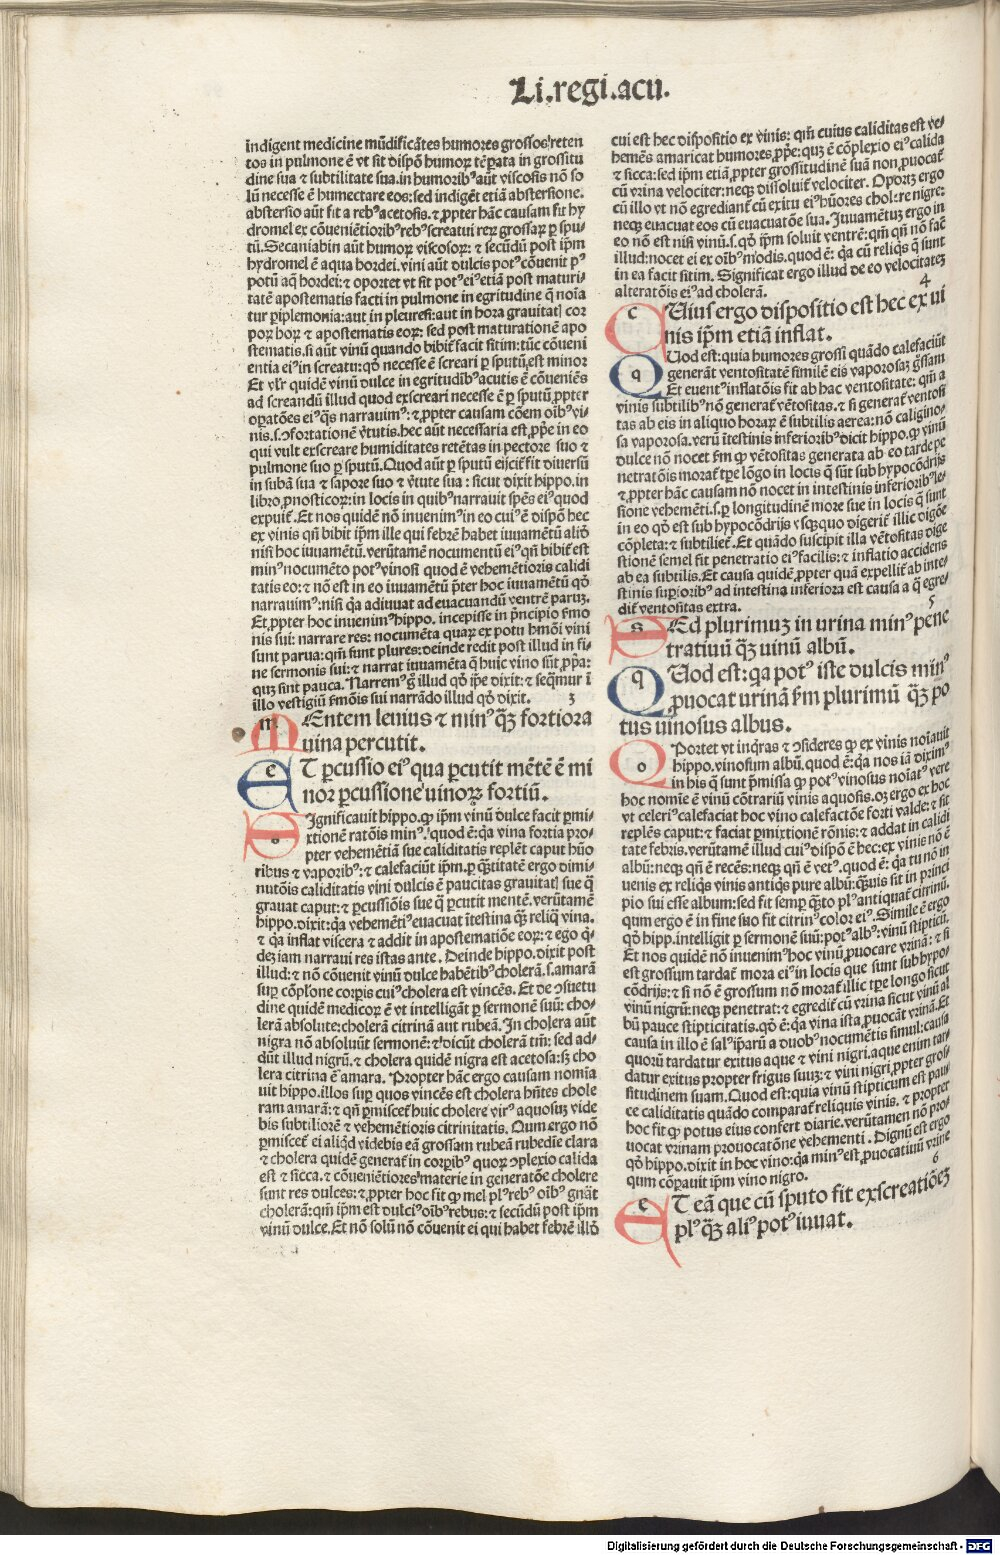 Li.regi.acu.
indigent medicine mūdificātes humores grossos reten
tos in pulmone ē vt sit dispō humoꝝ tēpata in grossitu
dine sua ⁊ subtilitate sua.in humoribꝰ aūt viscosis nō so
lū necesse ē humectare eos:sed indigēt etiā abstersione.
abstersio aūt fit a rebꝰ acetosis.⁊ ꝓpter hāc causam fit hy
dromel ex cōueniētioribꝰ rebꝰ screatui reꝝ grossaꝝ ꝑ spu-
tū.Secaniabin aūt humoꝝ viscosoꝝ: ⁊ secūdū post ip̄m
hydromel ē aqua hordei.vini aūt dulcis potꝰ cōuenit pꝰ
potū aq̄ hordei:⁊ oportet vt sit potꝰ eiꝰ etiā post maturi-
tatē apostematis facti in pulmone in egritudine q̄ noīa
tur ꝑiplemonia:aut in pleuresi:aut in hora grauitatꝭ cor
poꝝ hoꝝ ⁊ apostematis eoꝝ: sed post maturationē apo
stematis.si aūt vinū quando bibit̄ facit sitim:tūc cōueni
entia eiꝰ in screatu:qō necesse ē screari ꝑ sputū,est minor
Et vl̄r quidē vinū dulce in egritudibꝰ acutis ē cōueniēs
ad screandū illud quod exscreari necesse ē ꝑ sputū,ꝓpter
oꝑatōes eiꝰ q̄s narrauimꝰ:⁊ ꝓpter causam cōem oībꝰ vi-
nis.s.ↄfortationē v̄tutis.hec aūt necessaria est,ꝓpe in eo
qui vult exscreare humiditates retētas in pectore suo ⁊
pulmone suo ꝑ sputū.Quod aūt ꝑ sputū eijcit̄ fit diuersū
in subā sua ⁊ sapore suo ⁊ v̄tute sua : sicut dixit hippo.in
libro,ꝓnosticoꝝ:in locis in quibꝰ narrauit sp̄es eiꝰ quod
expuit̄.Et nos quidē nō inuenimꝰ in eo cuiꝰ ē dispō hec
ex vinis qn̄ bibit ip̄m ille qui febrē habet iuuamētū aliō
nisi hoc iuuamētū.verūtamē nocumentū eiꝰ qn̄ bibit̄ est
minꝰ nocumēto potꝰ vinosi quod ē vehemētioris calidi
tatis eo:⁊ nō est in eo iuuamētū p̄ter hoc iuuamētū qō
narrauimꝰ:nisi q̄a adiuuat ad euacuandū ventrē paruꝫ.
Et,ꝓpter hoc inuenimꝰ hippo. incepisse in p̄ncipio s̄mo
nis sui: narrare res: nocumēta quaꝝ ex potu hmōi vini
sunt parua:qm̄ sunt plures:deinde redit post illud in fi-
ne sermonis sui:⁊ narrat iuuamēta q̄ huic vino sūt,ꝓp̄a:
quꝫ sint pauca. Narremꝰ ḡ illud qō ip̄e dixit:⁊ seq̄mur ī
illo vestigiū s̄mōis sui narrādo illud qō dixit. 3
m Entem leuius ⁊ minꝰ q̄ꝫ fortiora
uina percutit.
e T ꝑcussio eiꝰ qua ꝑcutit mētē ē mi
nor ꝑcussione uinoꝝ fortiū.
Ignificauit hippo.ꝙ ip̄m vinū dulce facit ꝑmi-
xtionē ratōis minꝰ.quod ē:q̄a vina fortia pro-
pter vehemētiā sue caliditatis replēt caput hūo
ribus ⁊ vaporibꝰ:⁊ calefaciūt ip̄m.ꝑ q̄titatē ergo dimi-
nutōis caliditatis vini dulcis ē paucitas grauitatꝭ sue q̄
grauat caput:⁊ ꝑcussiōis sue q̄ ꝑcutit mentē.verūtamē
hippo.dixit:q̄a vehemētiꝰ euacuat ītestina q̄ꝫ reliq̄ vina.
⁊ q̄a inflat viscera ⁊ addit in apostematiōe eoꝝ:⁊ ego q̄-
deꝫ iam narraui res istas ante . Deinde hippo.dixit post
illud:⁊ nō cōuenit vinū dulce habētibꝰ cholerā.s.amarā
suꝑ cōplōne corꝑis cuiꝰ cholera est vincēs. Et de ↄsuetu
dine quidē medicoꝝ ē vt intelligāt ꝑ sermonē suū: cho-
lerā absolute:cholerā citrinā aut rubeā. In cholera aūt
nigra nō absoluūt sermonē:⁊ dicūt cholerā tm̄: sed ad-
dūt illud nigrū.⁊ cholera quidē nigra est acetosa:sꝫ cho
lera citrina ē amara. Propter hāc ergo causam nomīa
uit hippo.illos suꝑ quos vincēs est cholera hn̄tes chole
ram amarā:⁊ qn̄ ꝑmiscet̄ huic cholere virꝰ aquosuꝫ vide
bis subtiliorē ⁊ vehemētioris citrinitatis. Qum ergo nō
ꝑmiscet̄ ei aliq̄d videbis eā grossam rubeā rubedīe clara
⁊ cholera quidē generat̄ in corꝑibꝰ quoꝝ ↄplexio calida
est ⁊ sicca.⁊ cōueniētiores materie in generatōe cholere
sunt res dulces:⁊ ꝓpter hoc fit ꝙ mel plꝰ rebꝰ oībꝰ gnāt
cholerā:qm̄ ip̄m est dulciꝰ oībꝰ rebus:⁊ secūdū post ip̄m
vinū dulce.Et nō solū nō cōuenit ei qui habet febrē illō
cui est hec dispositio ex vinis: qm̄ cuius caliditas est ve-
hemēs amaricat humores,ꝓp̄e:quꝫ ē cōplexio eiꝰ calida
⁊ sicca:sed ip̄m etiā,ꝓpter grossitudinē suā non,ꝓuocat̄
cū vrina velociter:neqꝫ dissoluit̄ velociter. Oportꝫ ergo
cū illo vt nō egrediant̄ cū exitu eiꝰ hūores chol:re nigre:
neqꝫ euacuat eos cū euacuatōe sua. Iuuamētuꝫ ergo in
eo nō est nisi vinū.s.qō ip̄m soluit ventrē:qm̄ qn̄ nō fac̄
illud:nocet ei ex oībꝰ modis.quod ē: q̄a cū reliq̄s q̄ sunt
in ea facit sitim. Significat ergo illud de eo velocitateꝫ
alteratōis eiꝰ ad cholerā. 4
c Uius ergo dispositio est hec ex ui
nis ip̄m etiā inflat.
q Uod est:quia humores grossi quādo calefaciūt
generāt ventositatē similē eis vaporosaꝫ gr̄ssam
Et euentꝰ inflatōis fit ab hac ventositate: qm̄ a
vinis subtilibꝰ nō generat̄ vētositas.⁊ si generat̄ ventosi
tas ab eis in aliquo horaꝝ ē subtilis aerea:nō caligino-
sa vaporosa. verū ītestinis inferioribꝰ dicit hippo.ꝙ vinū
dulce nō nocet s̄m ꝙ vētositas generata ab eo tarde pe
netratōis morat̄ tꝑe lōgo in locis q̄ sūt sub hypocōdrijs
⁊ ꝓpter hāc causam nō nocet in intestinis inferioribꝰ le-
sione vehemēti.s.ꝑ longitudinē more sue in locis q̄ sunt
in eo qō est sub hypocōdrijs vsqꝫquo digerit̄ illic digōe
cōpleta:⁊ subtiliet̄.Et quādo suscipit illa vētositas dige
stionē semel fit penetratio eiꝰ facilis:⁊ inflatio accidens
ab ea subtilis.Et causa quidē,ꝓpter quā expellit̄ ab inte-
stinis suꝑioribꝰ ad intestina inferiora est causa a q̄ egre-
dit̄ ventositas extra. 5
s Ed plurimuꝫ in urina minꝰ pene
tratiuū q̄ꝫ uinū albū.
q Uod est:q̄a potꝰ iste dulcis minꝰ
ꝓuocat urinā s̄m plurimū q̄ꝫ po
tus uinosus albus.
o Portet vt inq̄ras ⁊ ↄsideres ꝙ ex vinis noīauit
hippo.vinosum albū.quod ē:q̄a nos iā diximꝰ
in his q̄ sunt p̄missa ꝙ potꝰ vinosus noīatꝰ vere
hoc nomīe ē vinū cōtrariū vinis aquosis.oꝫ ergo ex hoc
vt celeriꝰ calefaciat hoc vino calefactōe forti valde:⁊ sit
replēs caput:⁊ faciat ꝑmixtionē rōnis:⁊ addat in calidi
tate febris.verūtamē illud cuiꝰ dispō ē hec:ex vinis nō ē
albū:neqꝫ qn̄ ē recēs:neqꝫ qn̄ ē vetꝰ.quod ē: q̄a tu nō in
uenis ex reliq̄s vinis antiq̄s pure albū:q̄ꝫuis sit in princi
pio sui esse album:sed fit semꝑ q̄ꝫto plꝰ antiquat̄ citrinū.
qum ergo ē in fine suo fit citrinꝰ color eiꝰ.Simile ē ergo
qō hipp.intelligit ꝑ sermonē suū:potꝰ albꝰ:vinū stipticū.
Et nos quidē nō inuenimꝰ hoc vinū,ꝓuocare vrinā:⁊ si
est grossum tardat̄ mora eiꝰ in locis que sunt sub hypo-
cōdrijs:⁊ si nō ē grossum nō morat̄ illic tꝑe longo sicut
vinū nigrū:neqꝫ penetrat:⁊ egredit̄ cū vrina sicut vinū al
bū pauce stipticitatis.qō ē:q̄a vina ista,ꝓuocāt vrinā.Et
causa in illo ē salꝰ ip̄arū a duobꝰ nocumētis simul:causa
quorū tardatur exitus aque ⁊ vini nigri.aque enim tar-
datur exitus propter frigus suuꝫ:⁊ vini nigri,ꝓpter gros-
situdinem suam.Quod est:quia vinū stipticum est pau-
ce caliditatis quādo comparat̄ reliquis vinis. ⁊ propter
hoc fit ꝙ potus eius confert diarie.verūtamen nō pro-
uocat vrinam prouocatōne vehementi . Dignū est ergo
qō hippo.dixit in hoc vino:q̄a minꝰ est,ꝓuocatiuū vrine
qum cōꝑauit ip̄m vino nigro. 6
e T eā que cū sputo fit exscreatiōeꝫ
plꝰ q̄ꝫ aliꝰ potꝰ iuuat.
Digitalisierung gefördert durch die Deutsche Forschungsgemeinschaft - DFG